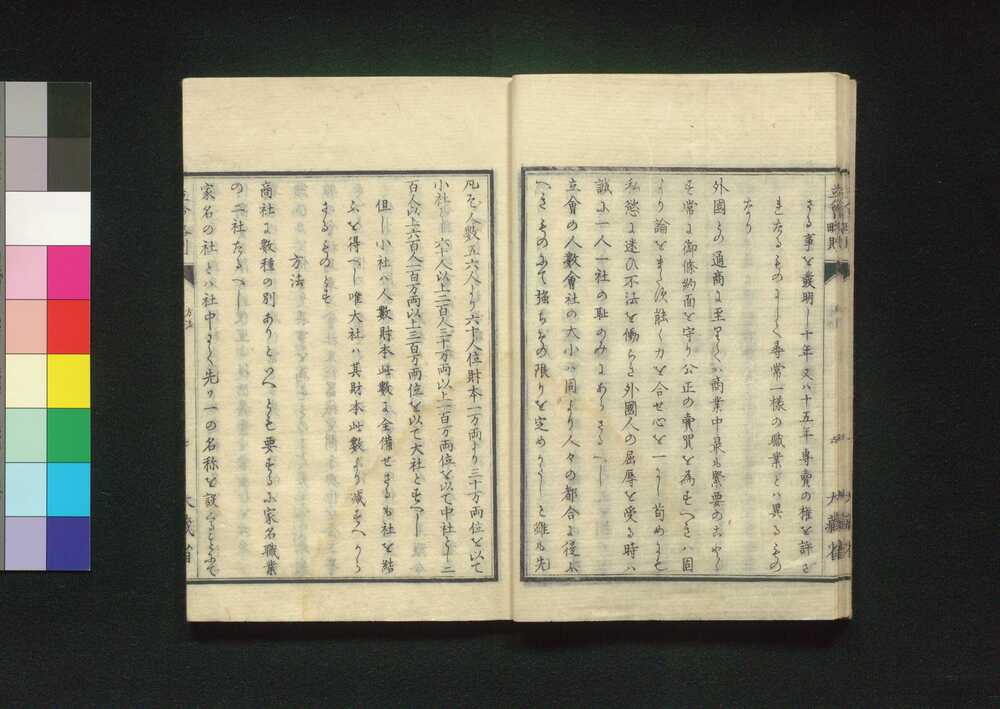 さる事を発明し十年又ハ十五年専賣の権を許さ
れたるものにして尋常一様の職業とハ異るもの
なり
外國との通商に至りてハ商業中最も緊要の
も常に御條約面を守り公正の賣買を為すへきハ固
より論をまたす能く力を合せ心を一にし苟めにも
私慾に迷ひ不法を働らき外國人の屈辱を受る時ハ
誠に一人一社の恥のみにあらさるへし
立會の人数會社の大小ハ固より人々の都合に従ふ
へきものにて強ちその限りを定めかたしと雖も先
凡そ人数五六人より六十人位財本一万両より三十万両位を以て
小社とし六十人以上二百人三十万両以上一百万両位を以て中社とし二
百人以上六百人一百万両以上三百万両位を以て大社とすへし
但し小社ハ人数財本此数に全備せさるも社を結
ふを得へし唯大社ハ其財本此数より減すへから
さるものとす
方法
商社に数種の別ありといへとも要するに家名職業
の二社たるへし
家名の社とハ社中にて先つ一の名称を設
立會略則
方法
大藏省